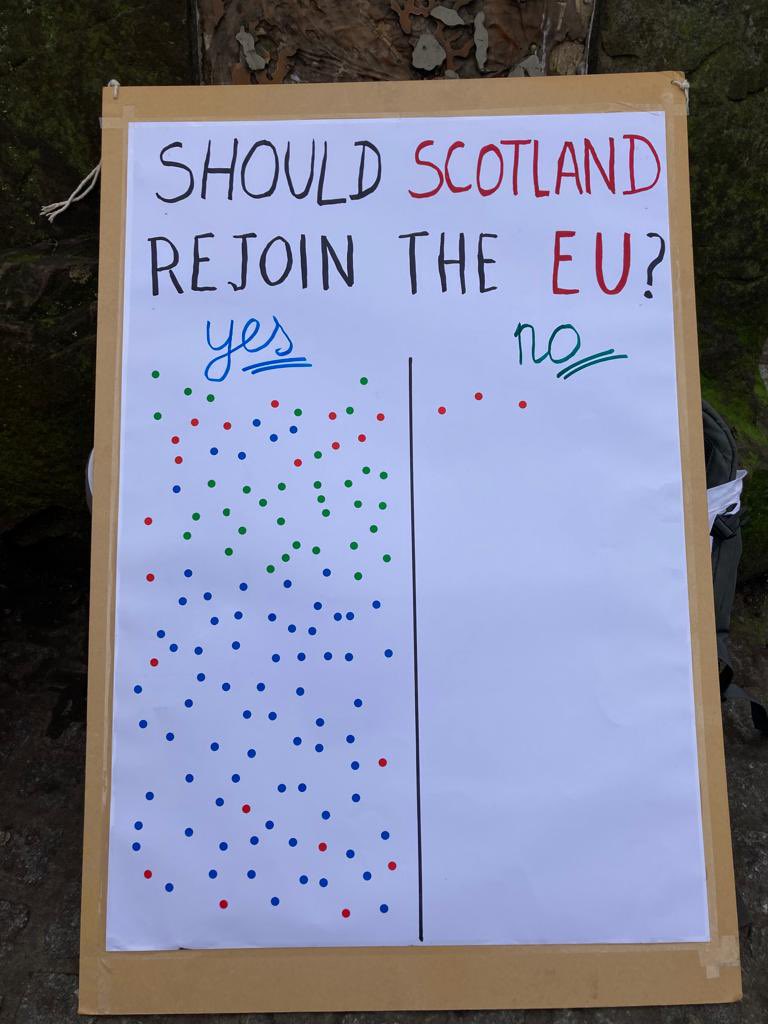 SHOULD SCOTLAND
REJOIN THE EU?
yes no